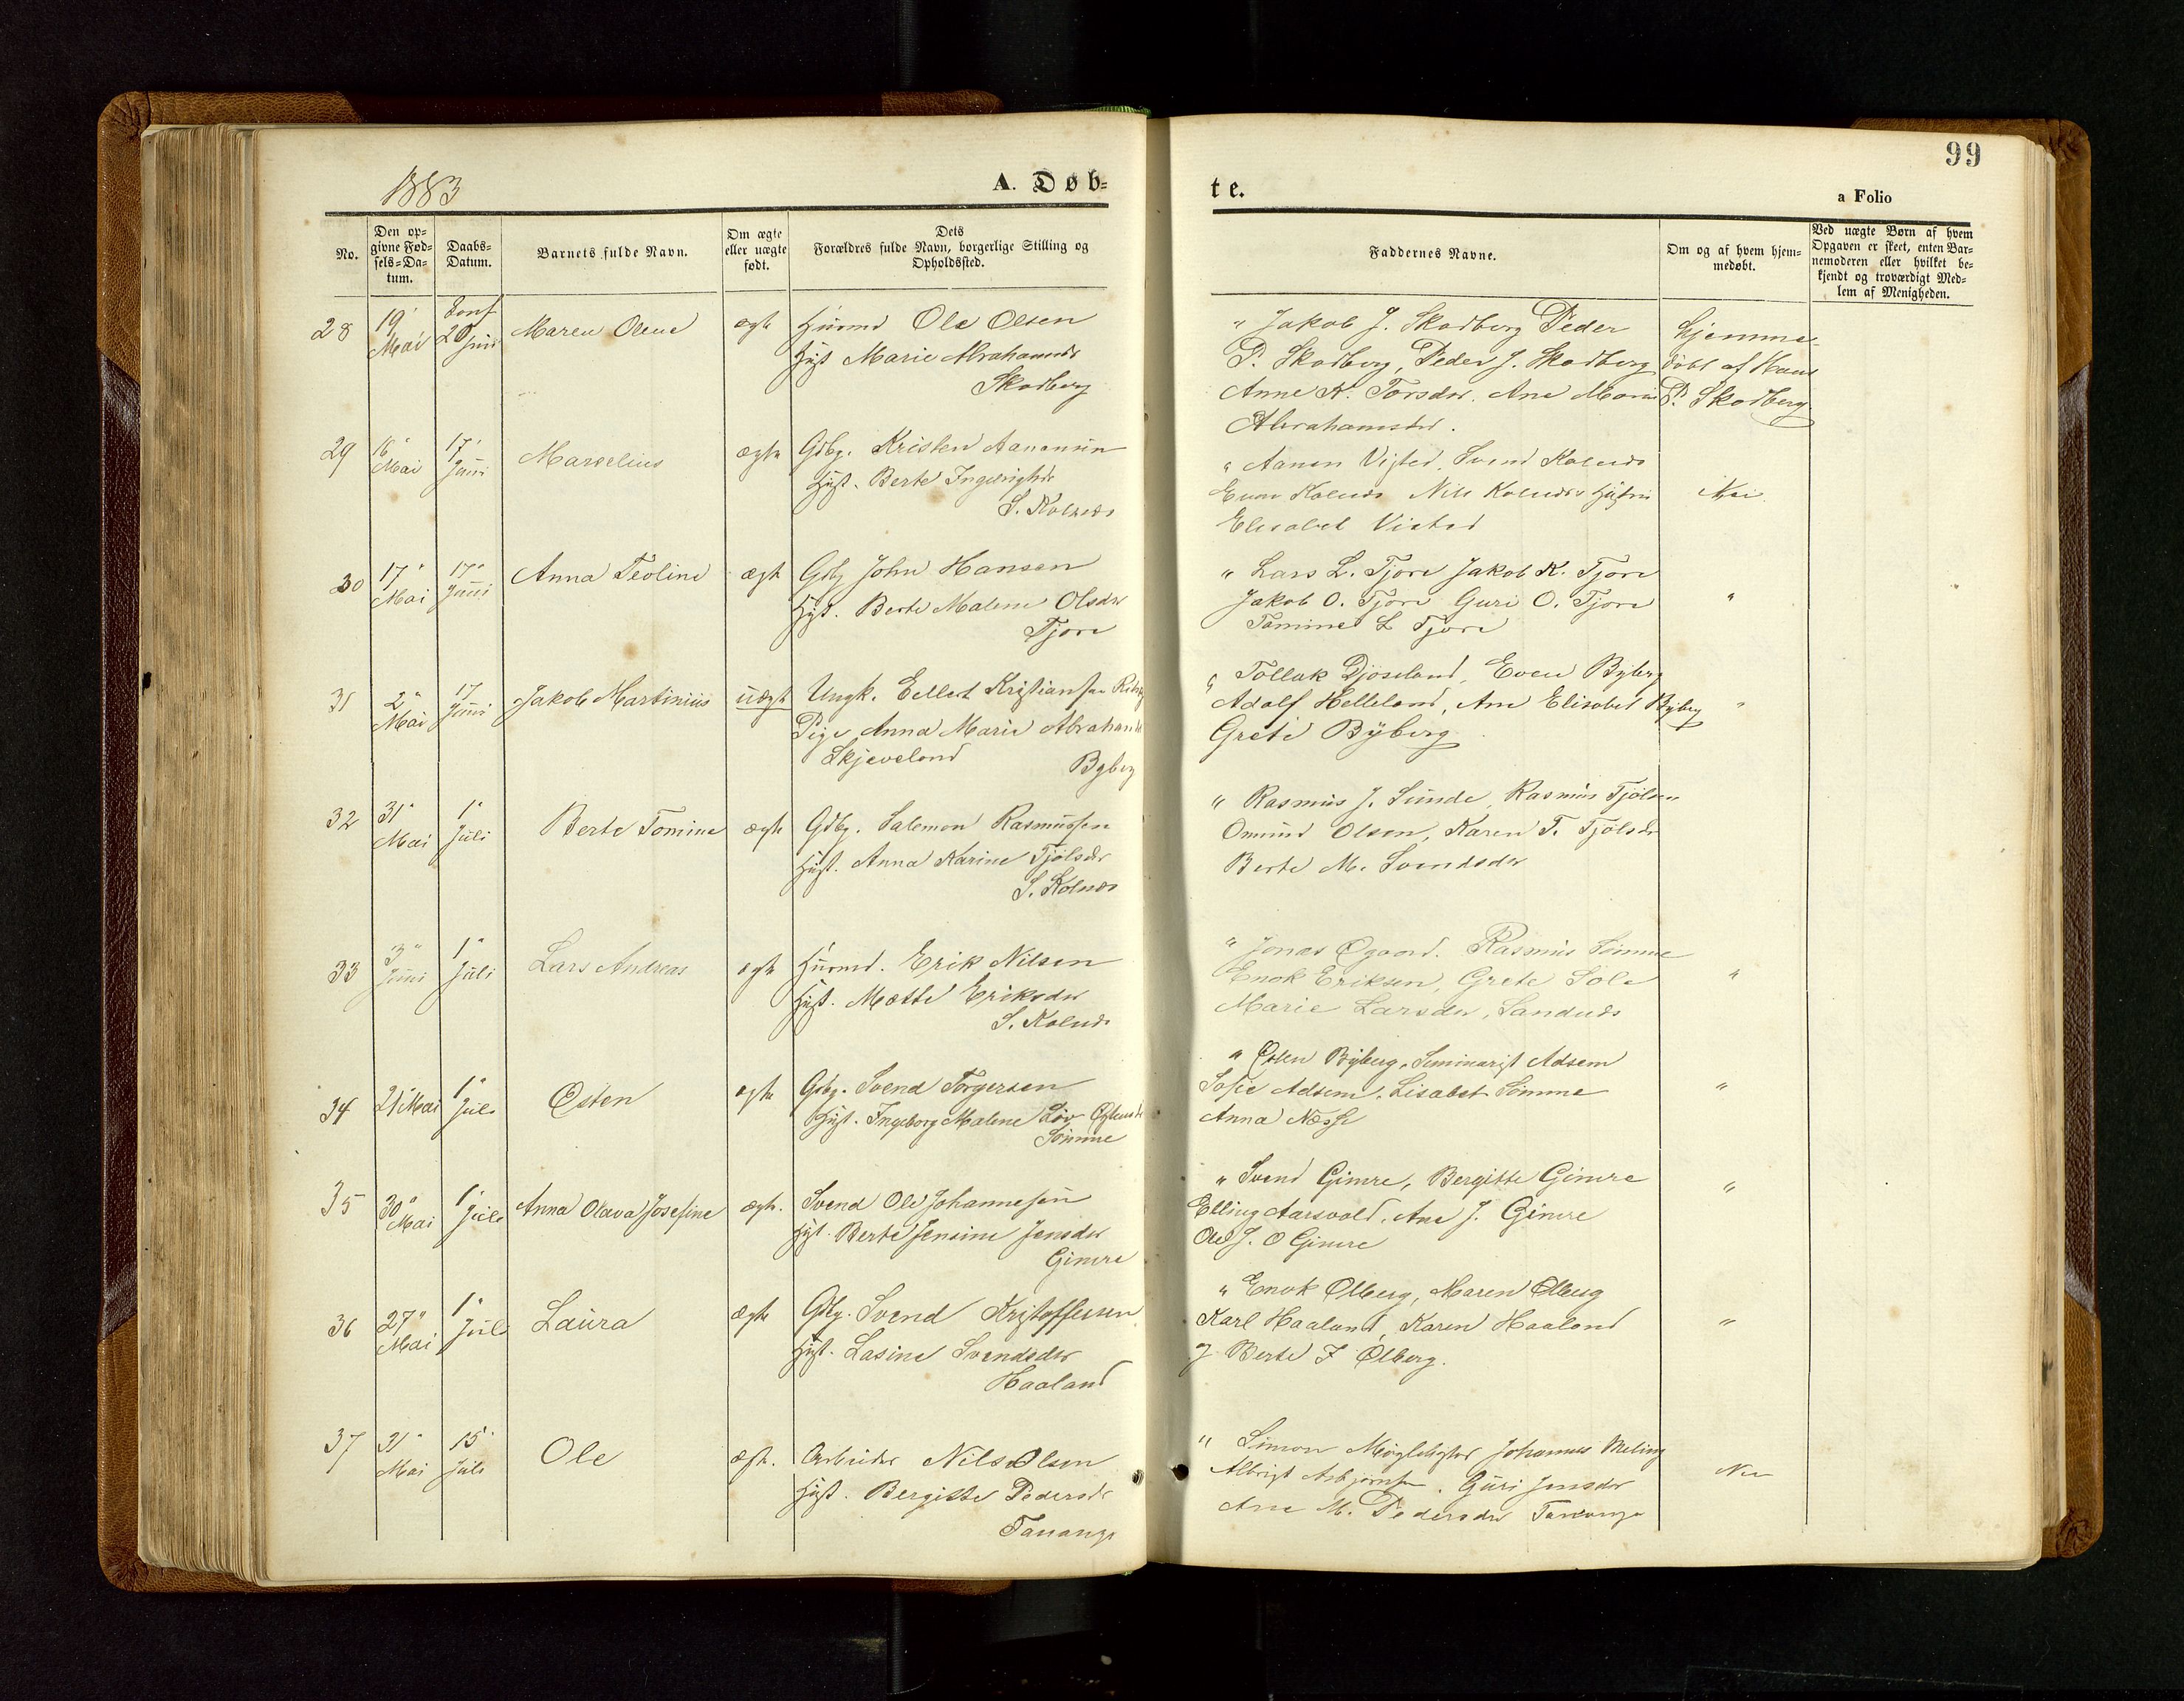 1883
A. Døb-
te.
99
a Folio
No.
Den op-
givne Fød-
sels-Da-
tum.
Daabs-
Datum.
Barnets fulde Navn.
Om ægte
eller uægte
født.
Dets
Forældres fulde Navn, borgerlige Stilling og
Opholdssted.
Faddernes Navne.
Om og af hvem hjem-
medøbt.
Ved uægte Børn af hvem
Opgaven er skeet, enten Bar-
nemoderen eller hvilket be-
kjendt og troværdigt Med-
lem af Menigheden.
28
19
Mai
Conf
20 Juni
Maren Olene
ægte
Huusmd Ole Olsen
Hust Marie Abrahamsdr
Skadberg
" Jakob J. Skadberg Peder
P. Skadberg, Peder J. Skadberg
Anne K. Torsdr. Ane Marie
Abrahamsdr.
Hjemme-
døbt af Hans
P. Skadberg
29
16"
Mai
17"
Juni
Marselius
ægte
Gdbg. Kristen Aanensen
Hust. Berte Ingebrigtsdr
S. Kolnæs
" Aanen Vigsted, Svend Kolnæs
Even Kolnæs Nils Kolnæs Hustru
Elisabet Vistad
Nei
30
17"
Mai
17"
Juni
Anna Teoline
ægte
Gdbg John Hansen
Hust. Berte Malene Olsdr
Tjore
" Lars L. Tjore Jakob K. Tjore
Jakob O. Tjore Guri O. Tjore
Tomine L Tjore
"
31
2"
Mai
17
Juni
Jakob Martinius
uægte
Ungk. Eilert Kristiansen
Pige Anna Marie Abrahamsdr
Skjeveland
Byberg
" Tollak Djoseland, Even Byberg
Adolf Helleland, Ane Elisabet Byberg
Grete Byberg
"
32
31"
Mai
1"
Juli
Berte Tomine
ægte
Gdbg. Salemon Rasmussen
Hust. Anna Karine Tjølsdr
S. Kolnæs
" Rasmus J. Sunde, Rasmus Tjølsen
Omund Olsen, Karen T. Tjølsdr
Berte M. Svendsdr
33
3"
Juni
1"
Juli
Lars Andreas
ægte
Huusmd. Erik Nilsen
Hust. Mætte Eriksdr
S. Kolnæs
" Jonas Øgaard. Rasmus Sømme
Enok Eriksen, Grete Sole
Marie Larsdr, Sandnæs
"
34
21 Mai
1"
Juli
Østen
ægte
Gdbg. Svend Torgersen
Hust. Ingeborg Malene Østensdr
Sømme
" Østen Byberg, Seminarist Adsem
Sofie Adsem, Lisabet Sømme
Anna Næsse
"
35
30"
Mai
1"
Juli
Anna Olava Josefine
ægte.
Svend Ole Johannesen
Hust. Berte Jensine Jensdr
Gimre
" Svend Gimre, Bergitte Gimre
Elling Aarsvold, Ane J. Gimre
Ole J. O Gimre
"
36
27"
Mai
1"
Juli
Laura
ægte
Gdbg. Svend Kristoffersen
Hust. Lasine Svendsdr
Haaland
" Enok Ølberg, Maren Ølberg
Karl Haaland, Karen Haaland
og Berte J Ølberg.
"
37
31"
Mai
15"
Juli
Ole
ægte.
Arbeider Nils Olsen
Hust. Bergitte Pedersdr
Tananger
" Simon Møglebgstø Johannes Meling
Albrigt Asbjørnsen, Guri Jensdr
Ane M. Pedersdr Tananger
Nei